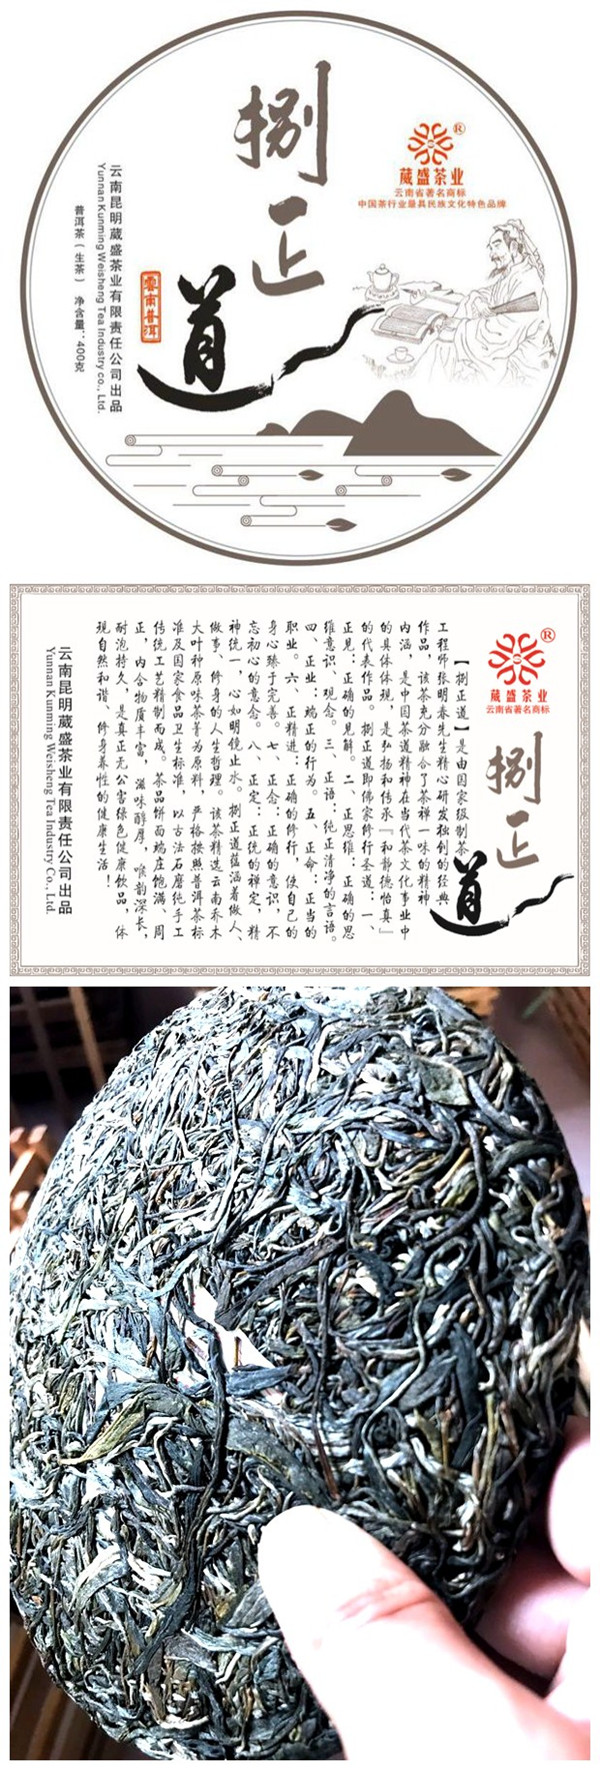 捌正道
®
葳盛茶业
云南省著名商标
中国茶行业最具民族文化特色品牌
雲南普洱
云南昆明葳盛茶业有限责任公司出品
Yunnan Kunming Weisheng Tea Industry co., Ltd.
普洱茶（生茶） 净含量：400克
®
葳盛茶业
云南省著名商标
捌正道
【捌正道】是由国家级制茶
工程师张明春先生精心研发独创的经典
作品，该茶充分融合了茶禅一味的精神
内涵，是中国茶道精神在当代茶文化事业中
的具体体现，是弘扬和传承『和静德怡真』
的代表作品。捌正道即佛家修行圣道：一、
正见：正确的见解。二、正思维：正确的思
维意识、观念。三、正语：纯正清净的言语。
四、正业：端正的行为。五、正命：正当的
职业。六、正精进：正确的修行，使自己的
身心臻于完善。七、正念：正确的意识，不
忘初心的意念。八、正定：正统的禅定，精
神统一，心如明镜止水。捌正道蕴涵着做人、
做事、修身的人生哲理。该茶精选云南乔木
大叶种原味茶菁为原料，严格按照普洱茶标
准及国家食品卫生标准，以古法石磨纯手工
传统工艺精制而成。茶品饼面端庄饱满、周
正，内含物质丰富，滋味醇厚，唯韵深长，
耐泡持久，是真正无公害绿色健康饮品，体
现自然和谐、修身养性的健康生活！
云南昆明葳盛茶业有限责任公司出品
Yunnan Kunming Weisheng Tea Industry Co., Ltd.